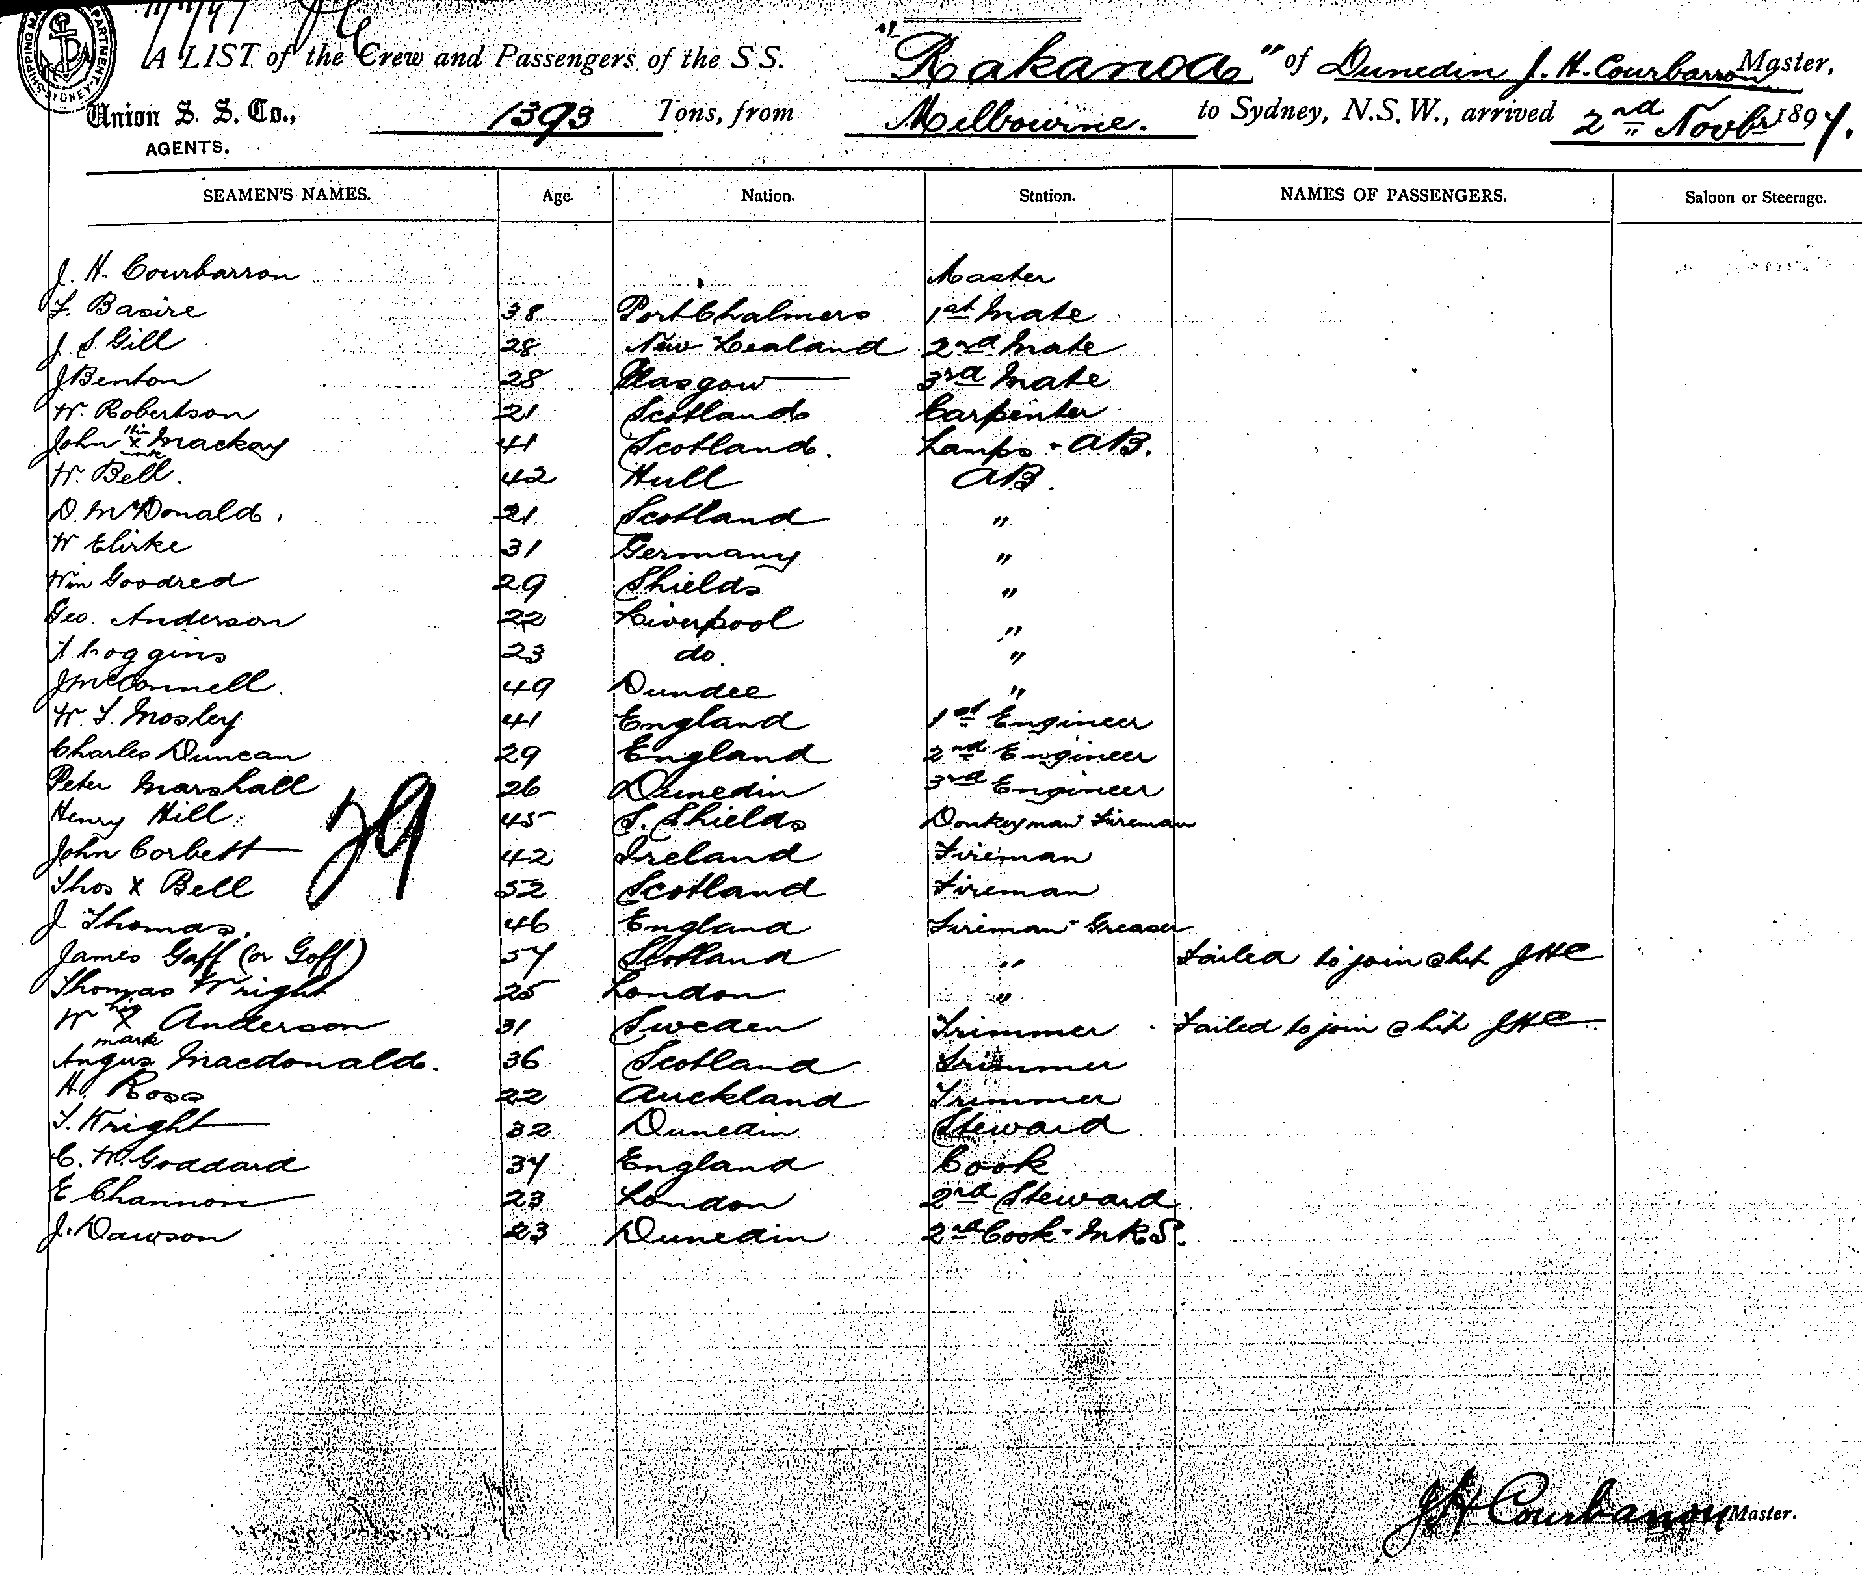 11/11/97 JC
A LIST of the Crew and Passengers of the S.S. "Rakanoa" of Dunedin J. H. Courbarron Master,
Union S. S. Co., 1393 Tons, from Melbourne. to Sydney, N.S.W., arrived 2nd Novbr 1897.
AGENTS.
SEAMEN'S NAMES. Age. Nation. Station. NAMES OF PASSENGERS. Saloon or Steerage.
J. H. Courbarron Master
F. Basire 38 Port Chalmers 1st Mate
J. S Gill 28 New Zealand 2nd Mate
J Benton 28 Glasgow 3rd Mate
W. Robertson 21 Scotland Carpenter
John his X mark Mackay 41 Scotland. Lamps - AB.
W. Bell. 42 Hull AB.
D. McDonald. 21 Scotland "
W 31 Germany "
Wm Goodred 29 Shields "
Geo. Anderson 22 Liverpool "
Coggins 23 do. "
J McConnell. 49 Dundee "
W. F. Mosley 41 England 1st Engineer
Charles Duncan 29 England 2nd Engineer
Peter Marshall 26 Dunedin 3rd Engineer
Henry Hill 45 S. Shields Donkeyman Fireman
John Corbett 42 Ireland Fireman
29
Thos X Bell 52 Scotland Fireman
J Thomas. 46 England Fireman - Greaser
James Gaff (or Goff) 57 Scotland " Failed to join ship JHC
Thomas Wright 25 London "
W his X mark Anderson 31 Sweden Trimmer Failed to join ship JHC
Angus Macdonald. 36 Scotland Trimmer
H. Ross 22 Auckland Trimmer
T. Wright 32 Dunedin Steward
C. W. Goddard 37 England Cook
E Channon 23 London 2nd Steward
J. Dawson 23 Dunedin 2nd Cook - M.R.S.
JH Courbarron Master.